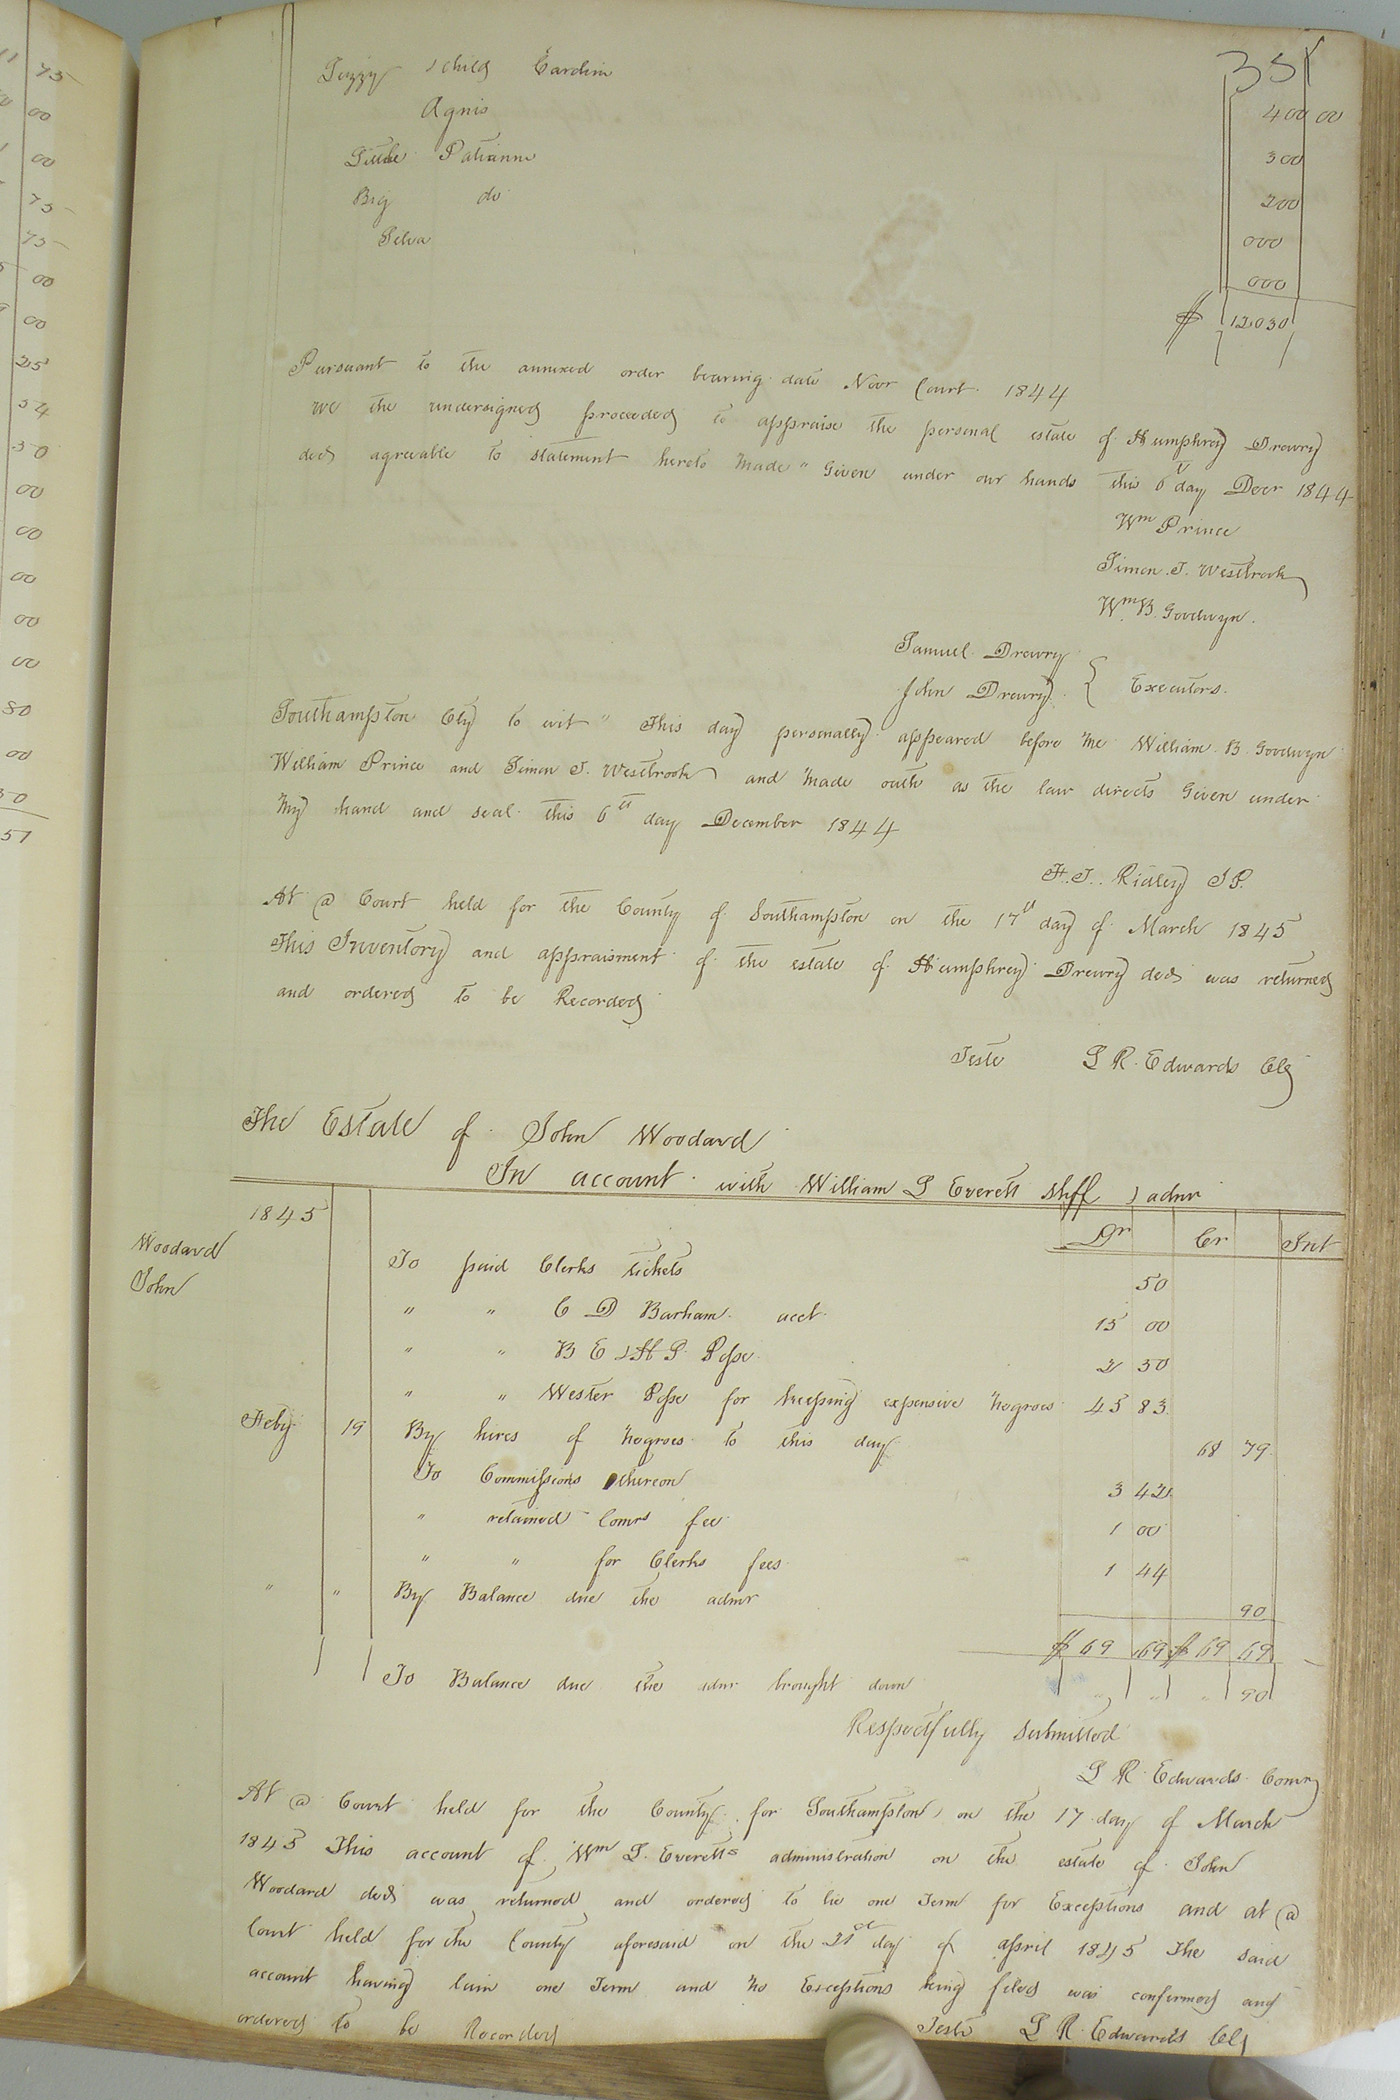 351
& child Caroline 400 00
Agnis 300
Little Patianne 200
Big do 000
Silva 000
$ 12030
Pursuant to the annexed order bearing date Novr Court 1844
we the undersigned proceeded to appraise the personal estate of Humphrey Drewry
decd agreeable to statement hereto made " Given under our hands this 6th day Decr 1844
Wm Prince
Simon J. Westbrook
Wm B. Goodwyn.
Samuel Drewry
John Drewry } Executors.
Southampton Cty to wit " This day personally appeared before me William B. Goodwyn
William Prince and Simon J. Westbrook and made oath as the law directs Given under
my hand and seal this 6th day December 1844
F. T. Ridley J P.
At a Court held for the County of Southampton on the 17th day of March 1845
This Inventory and appraisment of the estate of Humphrey Drewry decd was returned
and ordered to be Recorded
Teste L R. Edwards Clk
The Estate of John Woodard
In account with William L Everett shff & admr
1845 Dr Cr Int
Woodard
John
To paid Clerks tickets 50
" " C D Barham acct 15 00
" " B E & H P Pope 2 50
" " Wester Pope for keeping expensive negroes 45 83
Feby 19 By hires of negroes to this day 68 79
To Commissions thereon 3 42
" retained Comrs fee 1 00
" " for Clerks fees 1 44
" " By Balance due the admr 90
$ 69 69 $ 69 69
To Balance due the admr brought down " " " 90
Respectfully submitted
L R Edwards Comr
At a Court held for the County for Southampton on the 17 day of March
1845 This account of Wm L. Everetts administration on the estate of John
Woodard decd was returned and ordered to lie one Term for Exceptions and at a
Court held for the County aforesaid on the 21st day of april 1845 The said
account having lain one Term and no Exceptions being filed was confirmed and
ordered to be Recorded Teste L R. Edwards Clk
11 75
00
00
75
75
00
00
25
54
50
00
00
00
00
00
80
00
50
51